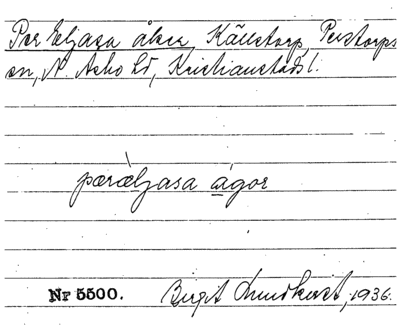 Per Eljasa åker, Källstorp, Perstorps
sn, N. Åsbo hd, Kristianstads l.
pæræ̀ljasa ágor
Nr 5500. Birgit Lundkvist, 1936.